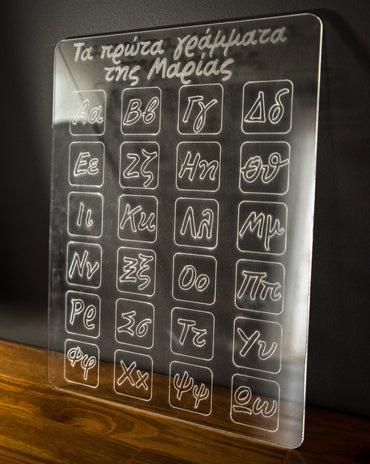 Τα πρώτα γράμματα
της Μαρίας
Αα Ββ Γγ Δδ
Εε Ζζ Ηη Θθ
Ιι Κκ Λλ Μμ
Νν Ξξ Οο Ππ
Ρρ Σσ Ττ Υυ
Φφ Χχ Ψψ Ωω